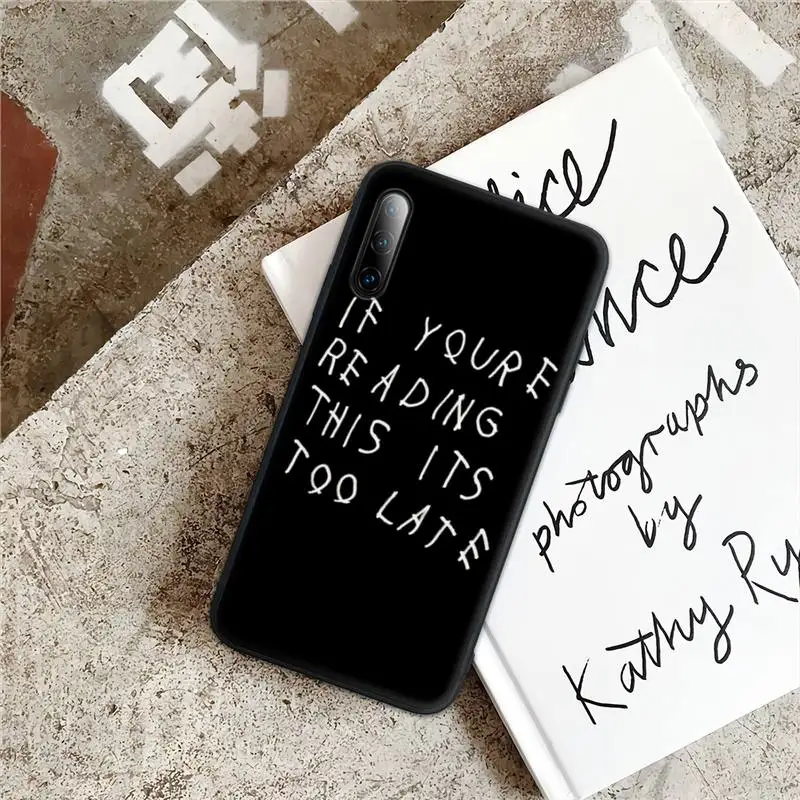 IF YOURE
READING
THIS ITS
TOO LATE
photographs
by
Kathy